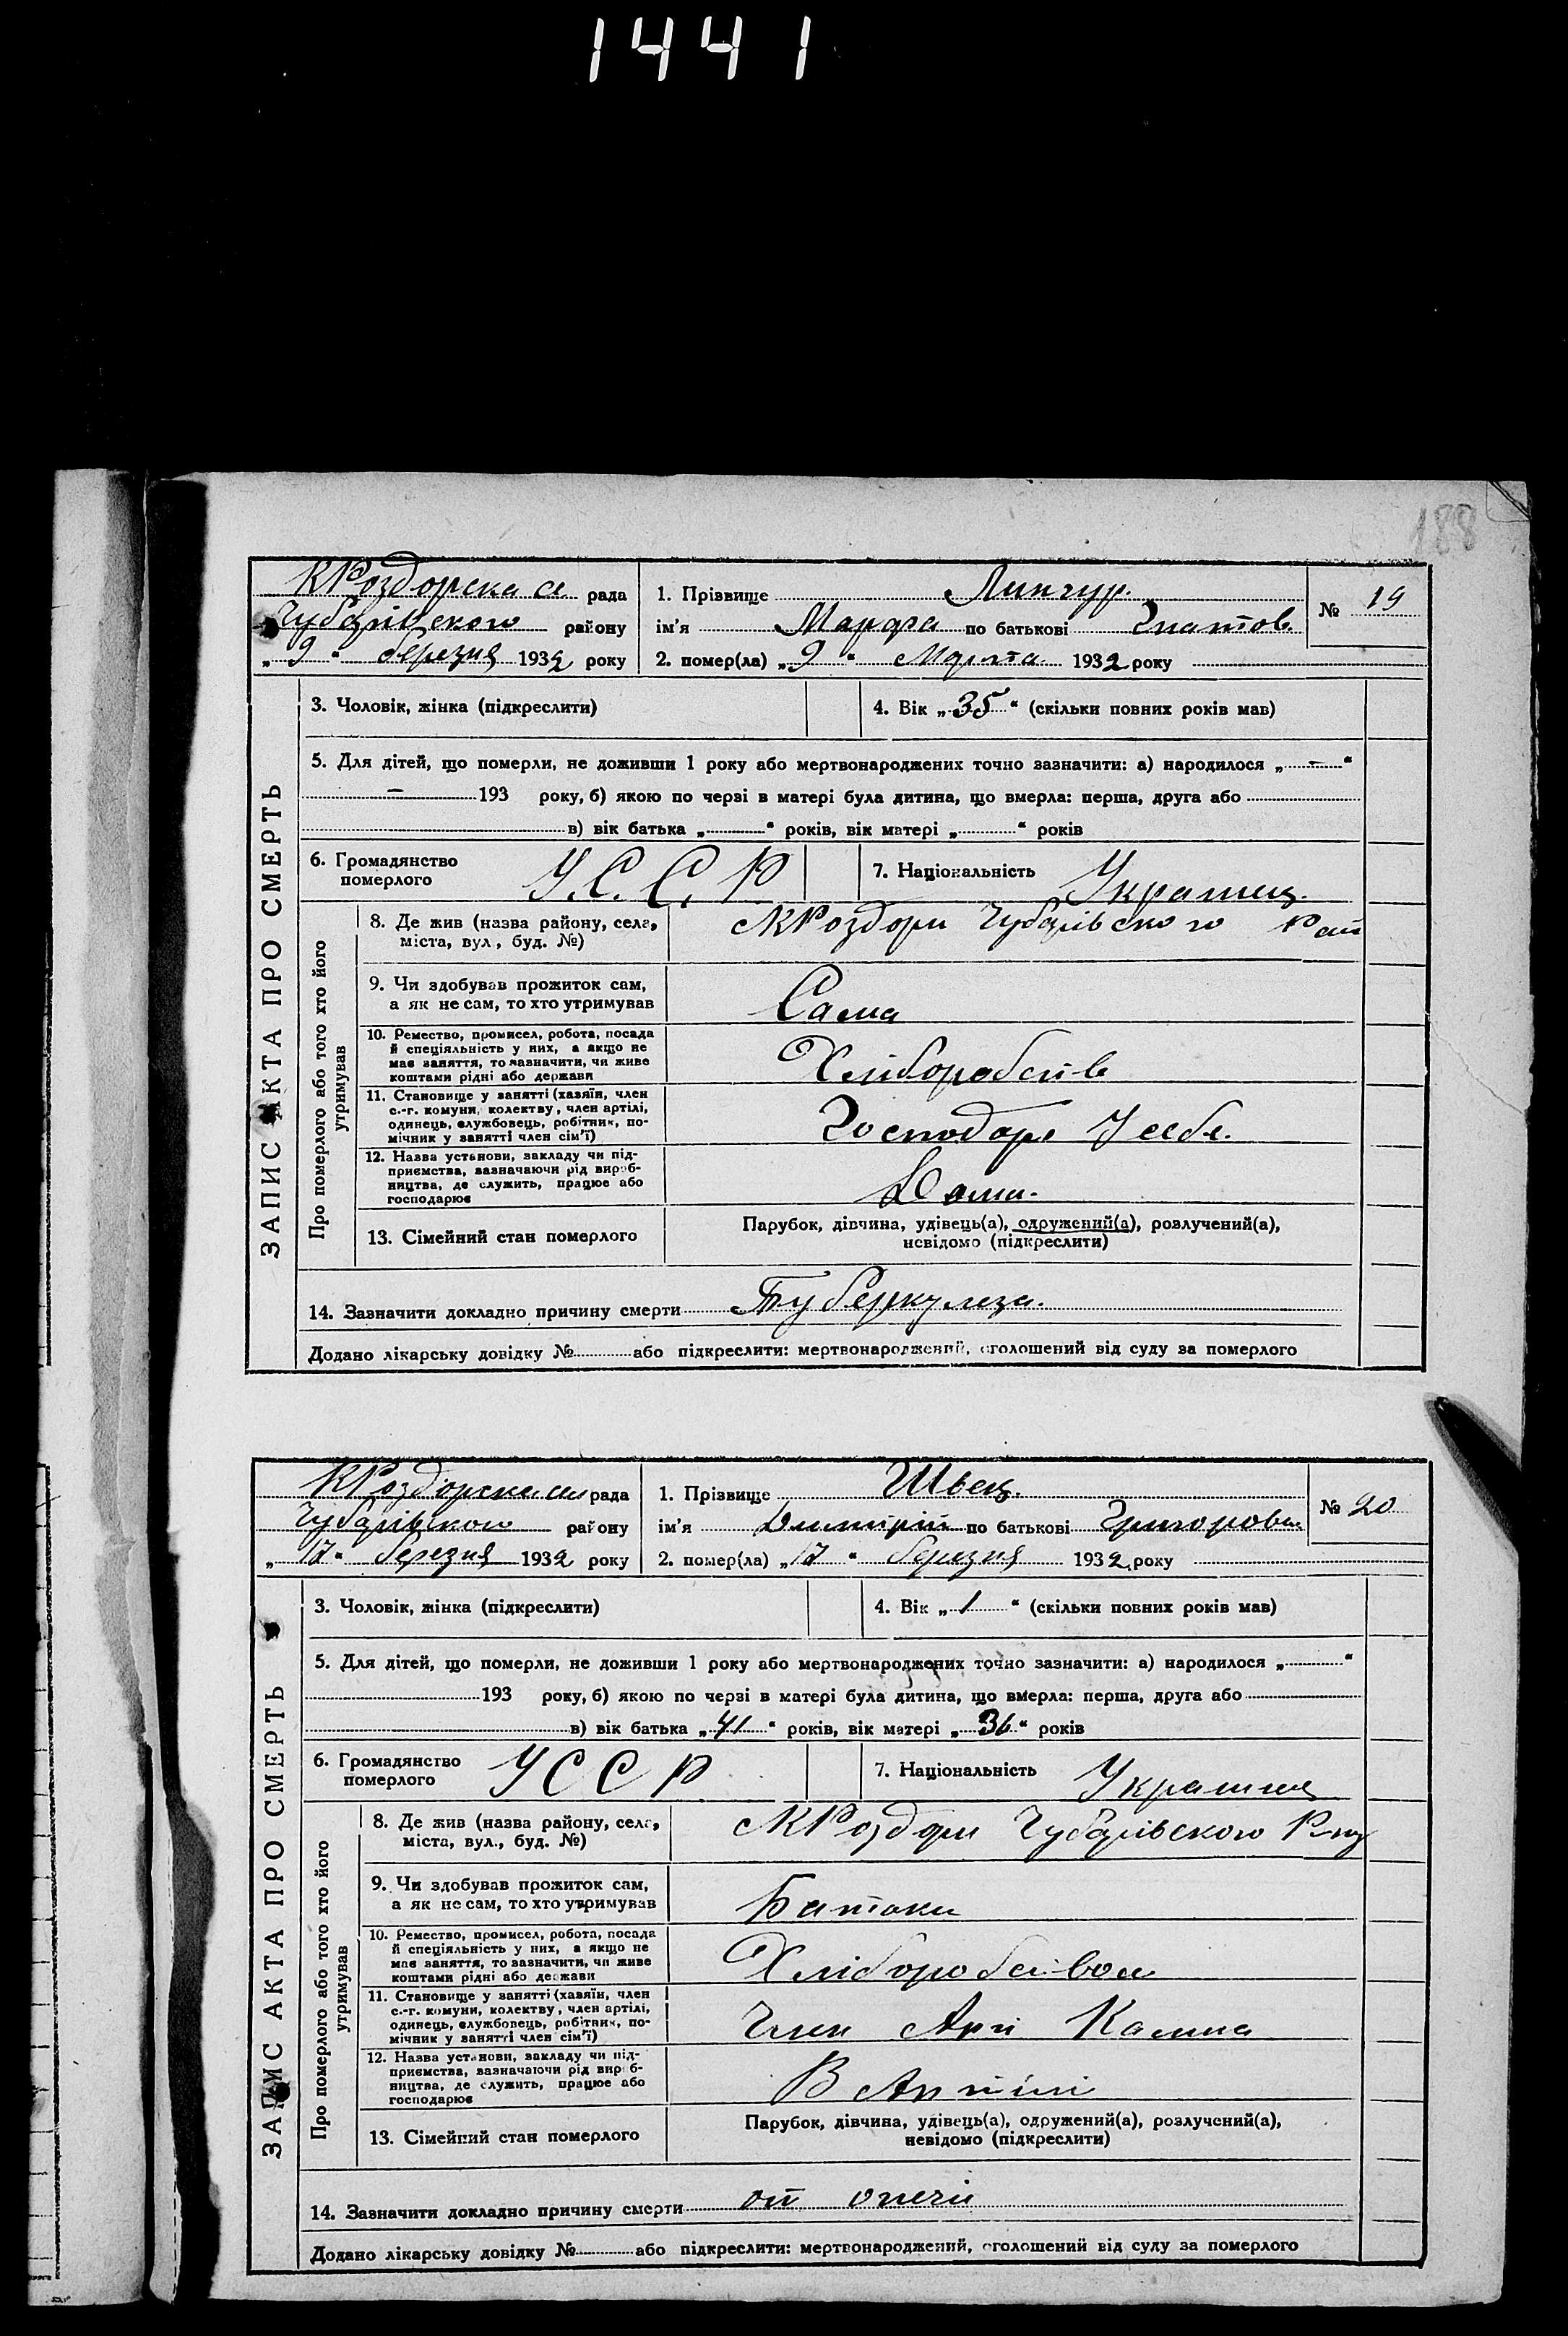 1441
188
ЗАПИС АКТА ПРО СМЕРТЬ
КРоздорська с. рада
Чубарівского району
„ 9 “ березня 1932 року
1. Прізвище Линчур.
ім'я Марфа по батькові Гнатов.
2. помер(ла) „ 9 “ Марта 1932 року
№ 19
3. Чоловік, жінка (підкреслити)
4. Вік „ 35 “ (скільки повних років мав)
5. Для дітей, що померли, не доживши 1 року або мертвонароджених точно зазначити: а) народилося „ — “
— 193 року, б) якою по черзі в матері була дитина, що вмерла: перша, друга або
в) вік батька „ “ років, вік матері „ “ років
6. Громадянство померлого У.С.С.Р
7. Національність Украинец.
Про померлого або того хто його утримував
8. Де жив (назва району, села, міста, вул., буд. №) КРоздори Чубарівского Рай
9. Чи здобував прожиток сам, а як не сам, то хто утримував
Сама
10. Ремество, промисел, робота, посада й спеціяльність у них, а якщо не має заняття, то зазначити, чи живе коштами рідні або держави
Хліборобств
11. Становище у занятті (хазяїн, член с.-г. комуни, колективу, член артілі, одинець, службовець, робітник, помічник у занятті член сім'ї)
Господарь У себе.
12. Назва установи, закладу чи підприємства, зазначаючи рід виробництва, де служить, працює або господарює
Дома.
13. Сімейний стан померлого
Парубок, дівчина, удівець(а), одружений(а), розлучений(а),
невідомо (підкреслити)
14. Зазначити докладно причину смерти Туберкулеза.
Додано лікарську довідку № або підкреслити: мертвонароджений, оголошений від суду за померлого
ЗАПИС АКТА ПРО СМЕРТЬ
КРоздорська рада
Чубарівского району
„ 17 “ березня 1932 року
1. Прізвище Швец.
ім'я Димитрій по батькові Григорови.
2. помер(ла) „ 17 “ березня 1932 року
№ 20
3. Чоловік, жінка (підкреслити)
4. Вік „ 1 “ (скільки повних років мав)
5. Для дітей, що померли, не доживши 1 року або мертвонароджених точно зазначити: а) народилося „ “
193 року, б) якою по черзі в матері була дитина, що вмерла: перша, друга або
в) вік батька „ 41 “ років, вік матері „ 36 “ років
6. Громадянство померлого УССР
7. Національність Украинец
Про померлого або того хто його утримував
8. Де жив (назва району, села, міста, вул., буд. №) КРоздори Чубарівского
9. Чи здобував прожиток сам, а як не сам, то хто утримував
Батьки
10. Ремество, промисел, робота, посада й спеціяльність у них, а якщо не має заняття, то зазначити, чи живе коштами рідні або держави
Хліборобством
11. Становище у занятті (хазяїн, член с.-г. комуни, колективу, член артілі, одинець, службовець, робітник, помічник у занятті член сім'ї)
Член Арті
12. Назва установи, закладу чи підприємства, зазначаючи рід виробництва, де служить, працює або господарює
В Артілі
13. Сімейний стан померлого
Парубок, дівчина, удівець(а), одружений(а), розлучений(а),
невідомо (підкреслити)
14. Зазначити докладно причину смерти от
Додано лікарську довідку № або підкреслити: мертвонароджений, оголошений від суду за померлого